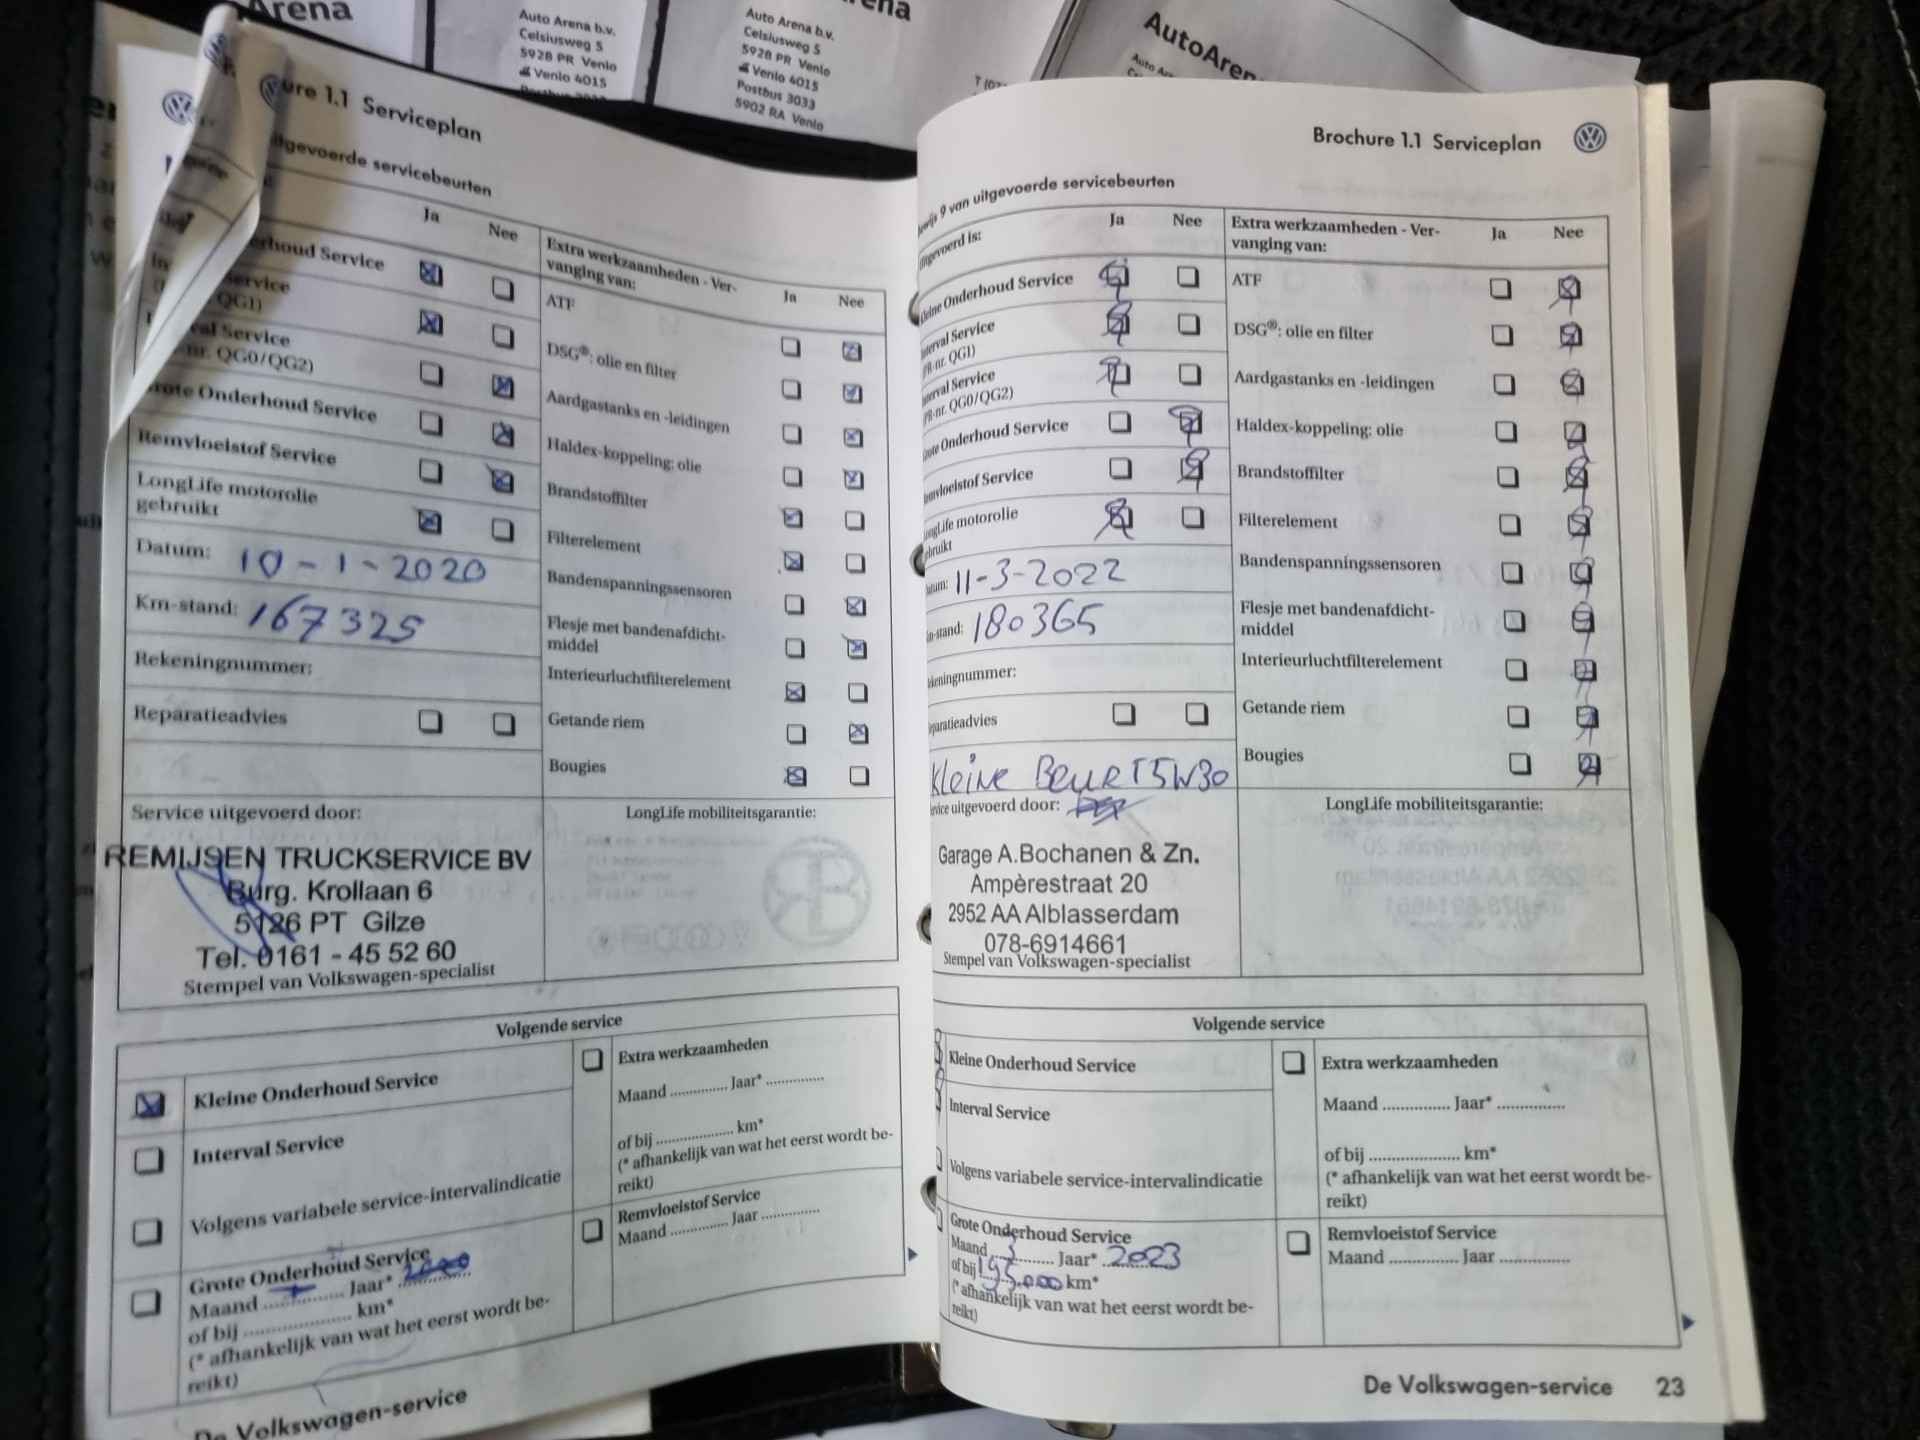 Arena
Auto Arena b.v.
Celsiusweg 5
5928 PR Venlo
Venlo 4015
Auto Arena b.v.
Celsiusweg 5
5928 PR Venlo
Venlo 4015
Postbus 3033
5902 RA Venlo
AutoArena
ure 1.1 Serviceplan
itgevoerde servicebeurten
Ja
Nee
erhoud Service
QG1)
nr. QG0/QG2)
Grote Onderhoud Service
Remvloeistof Service
LongLife motorolie
gebruikt
Datum: 10-1-2020
Km-stand: 167325
Rekeningnummer:
Reparatieadvies
Extra werkzaamheden - Ver-
vanging van:
Ja
Nee
ATF
DSG®: olie en filter
Aardgastanks en -leidingen
Haldex-koppeling: olie
Brandstoffilter
Filterelement
Bandenspanningssensoren
Flesje met bandenafdicht-
middel
Interieurluchtfilterelement
Getande riem
Bougies
Service uitgevoerd door:
LongLife mobiliteitsgarantie:
REMIJSEN TRUCKSERVICE BV
Burg. Krollaan 6
5126 PT Gilze
Tel. 0161 - 45 52 60
Stempel van Volkswagen-specialist
Volgende service
Kleine Onderhoud Service
Interval Service
Volgens variabele service-intervalindicatie
Grote Onderhoud Service
Maand .............. Jaar* 2020
of bij .................... km*
(* afhankelijk van wat het eerst wordt be-
reikt)
Extra werkzaamheden
Maand .............. Jaar* ..............
of bij .................... km*
(* afhankelijk van wat het eerst wordt be-
reikt)
Remvloeistof Service
Maand .............. Jaar ..............
De Volkswagen-service
Brochure 1.1 Serviceplan
9 van uitgevoerde servicebeurten
itgevoerd is:
Ja
Nee
Kleine Onderhoud Service
Interval Service
(PR-nr. QG1)
Interval Service
(PR-nr. QG0/QG2)
Grote Onderhoud Service
Remvloeistof Service
LongLife motorolie
gebruikt
Datum: 11-3-2022
Km-stand: 180365
Rekeningnummer:
Reparatieadvies
Kleine Beurt 5W30
Extra werkzaamheden - Ver-
vanging van:
Ja
Nee
ATF
DSG®: olie en filter
Aardgastanks en -leidingen
Haldex-koppeling: olie
Brandstoffilter
Filterelement
Bandenspanningssensoren
Flesje met bandenafdicht-
middel
Interieurluchtfilterelement
Getande riem
Bougies
Service uitgevoerd door:
LongLife mobiliteitsgarantie:
Garage A.Bochanen & Zn.
Ampèrestraat 20
2952 AA Alblasserdam
078-6914661
Stempel van Volkswagen-specialist
Volgende service
Kleine Onderhoud Service
Interval Service
Volgens variabele service-intervalindicatie
Grote Onderhoud Service
Maand 3 Jaar* 2023
of bij 195.000 km*
(* afhankelijk van wat het eerst wordt be-
reikt)
Extra werkzaamheden
Maand .............. Jaar* ..............
of bij .................... km*
(* afhankelijk van wat het eerst wordt be-
reikt)
Remvloeistof Service
Maand .............. Jaar ..............
De Volkswagen-service 23